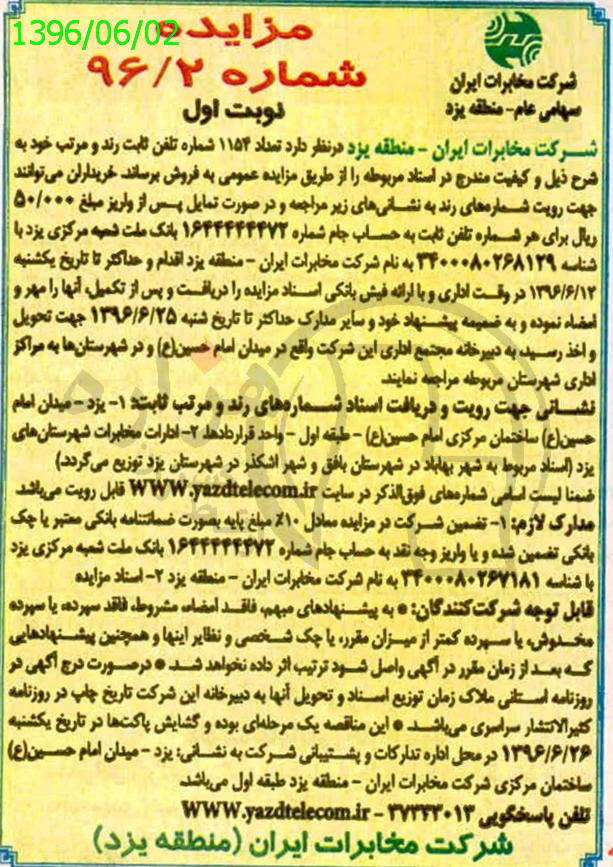 1396/06/02
مزایده
شماره ۹۶/۲
نوبت اول
شرکت مخابرات ایران
سهامی عام- منطقه یزد
شرکت مخابرات ایران - منطقه یزد درنظر دارد تعداد ۱۱۵۴ شماره تلفن ثابت رند و مرتب خود به
شرح ذیل و کیفیت مندرج در اسناد مربوطه را از طریق مزایده عمومی به فروش برساند. خریداران می‌توانند
جهت رویت شماره‌های رند به نشانی‌های زیر مراجعه و در صورت تمایل پس از واریز مبلغ ۵۰/۰۰۰
ریال برای هر شماره تلفن ثابت به حساب جام شماره ۱۶۴۴۴۴۴۴۷۲ بانک ملت شعبه مرکزی یزد با
شناسه ۳۴۰۰۰۸۰۲۶۸۱۲۹ به نام شرکت مخابرات ایران - منطقه یزد اقدام و حداکثر تا تاریخ یکشنبه
۱۳۹۶/۶/۱۲ در وقت اداری و با ارائه فیش بانکی اسناد مزایده را دریافت و پس از تکمیل، آنها را مهر و
امضاء نموده و به ضمیمه پیشنهاد خود و سایر مدارک حداکثر تا تاریخ شنبه ۱۳۹۶/۶/۲۵ جهت تحویل
و اخذ رسید، به دبیرخانه مجتمع اداری این شرکت واقع در میدان امام حسین(ع) و در شهرستان‌ها به مراکز
اداری شهرستان مربوطه مراجعه نمایند.
نشانی جهت رویت و دریافت اسناد شماره‌های رند و مرتب ثابت: ۱- یزد - میدان امام
حسین(ع) ساختمان مرکزی امام حسین(ع) - طبقه اول - واحد قراردادها. ۲- ادارات مخابرات شهرستان‌های
یزد (اسناد مربوط به شهر بهاباد در شهرستان بافق و شهر اشکذر در شهرستان یزد توزیع می‌گردد.)
ضمنا لیست اسامی شماره‌های فوق‌الذکر در سایت WWW.yazdtelecom.ir قابل رویت می‌باشد.
مدارک لازم: ۱- تضمین شرکت در مزایده معادل ۱۰٪ مبلغ پایه بصورت ضمانتنامه بانکی معتبر یا چک
بانکی تضمین شده و یا واریز وجه نقد به حساب جام شماره ۱۶۴۴۴۴۴۴۷۲ بانک ملت شعبه مرکزی یزد
با شناسه ۳۴۰۰۰۸۰۲۶۷۱۸۱ به نام شرکت مخابرات ایران - منطقه یزد ۲- اسناد مزایده
قابل توجه شرکت‌کنندگان: * به پیشنهادهای مبهم، فاقد امضاء، مشروط، فاقد سپرده، یا سپرده
مخدوش، یا سپرده کمتر از میزان مقرر، یا چک شخصی و نظایر اینها و همچنین پیشنهادهایی
که بعد از زمان مقرر در آگهی واصل شود ترتیب اثر داده نخواهد شد. * درصورت درج آگهی در
روزنامه استانی ملاک زمان توزیع اسناد و تحویل آنها به دبیرخانه این شرکت تاریخ چاپ در روزنامه
کثیرالانتشار سراسری می‌باشد. * این مناقصه یک مرحله‌ای بوده و گشایش پاکت‌ها در تاریخ یکشنبه
۱۳۹۶/۶/۲۶ در محل اداره تدارکات و پشتیبانی شرکت به نشانی: یزد - میدان امام حسین(ع)
ساختمان مرکزی شرکت مخابرات ایران - منطقه یزد طبقه اول می‌باشد.
تلفن پاسخگویی ۳۷۲۴۳۰۱۳ - WWW.yazdtelecom.ir
شرکت مخابرات ایران (منطقه یزد)